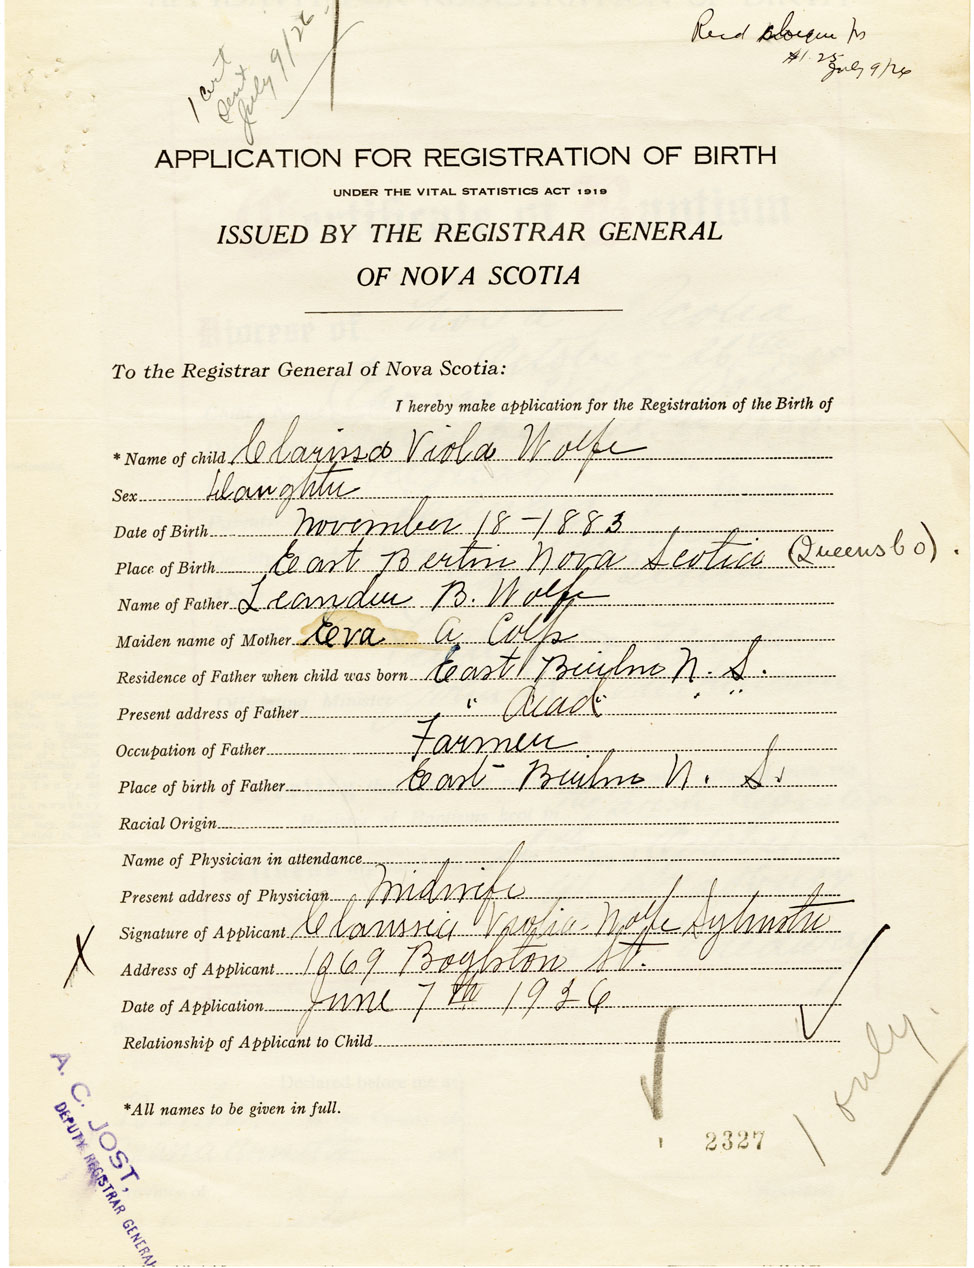 1 cert
sent
July 9/26
Recd
$1.25
July 9/26
APPLICATION FOR REGISTRATION OF BIRTH
UNDER THE VITAL STATISTICS ACT 1919
ISSUED BY THE REGISTRAR GENERAL
OF NOVA SCOTIA
To the Registrar General of Nova Scotia:
I hereby make application for the Registration of the Birth of
* Name of child Clarissa Viola Wolfe
Sex Daughter
Date of Birth November 18-1883
Place of Birth East Berlin Nova Scotia (Queens Co).
Name of Father Leander B. Wolfe
Maiden name of Mother Eva A Colp
Residence of Father when child was born East Berlin N. S.
Present address of Father " dead " "
Occupation of Father Farmer
Place of birth of Father East Berlin N. S.
Racial Origin
Name of Physician in attendance
Present address of Physician Midwife
Signature of Applicant Viola Wolfe
X Address of Applicant 1069 Boylston St.
Date of Application June 7th 1926
Relationship of Applicant to Child
*All names to be given in full.
A. C. JOST,
DEPUTY REGISTRAR GENERAL
2327
1 only.